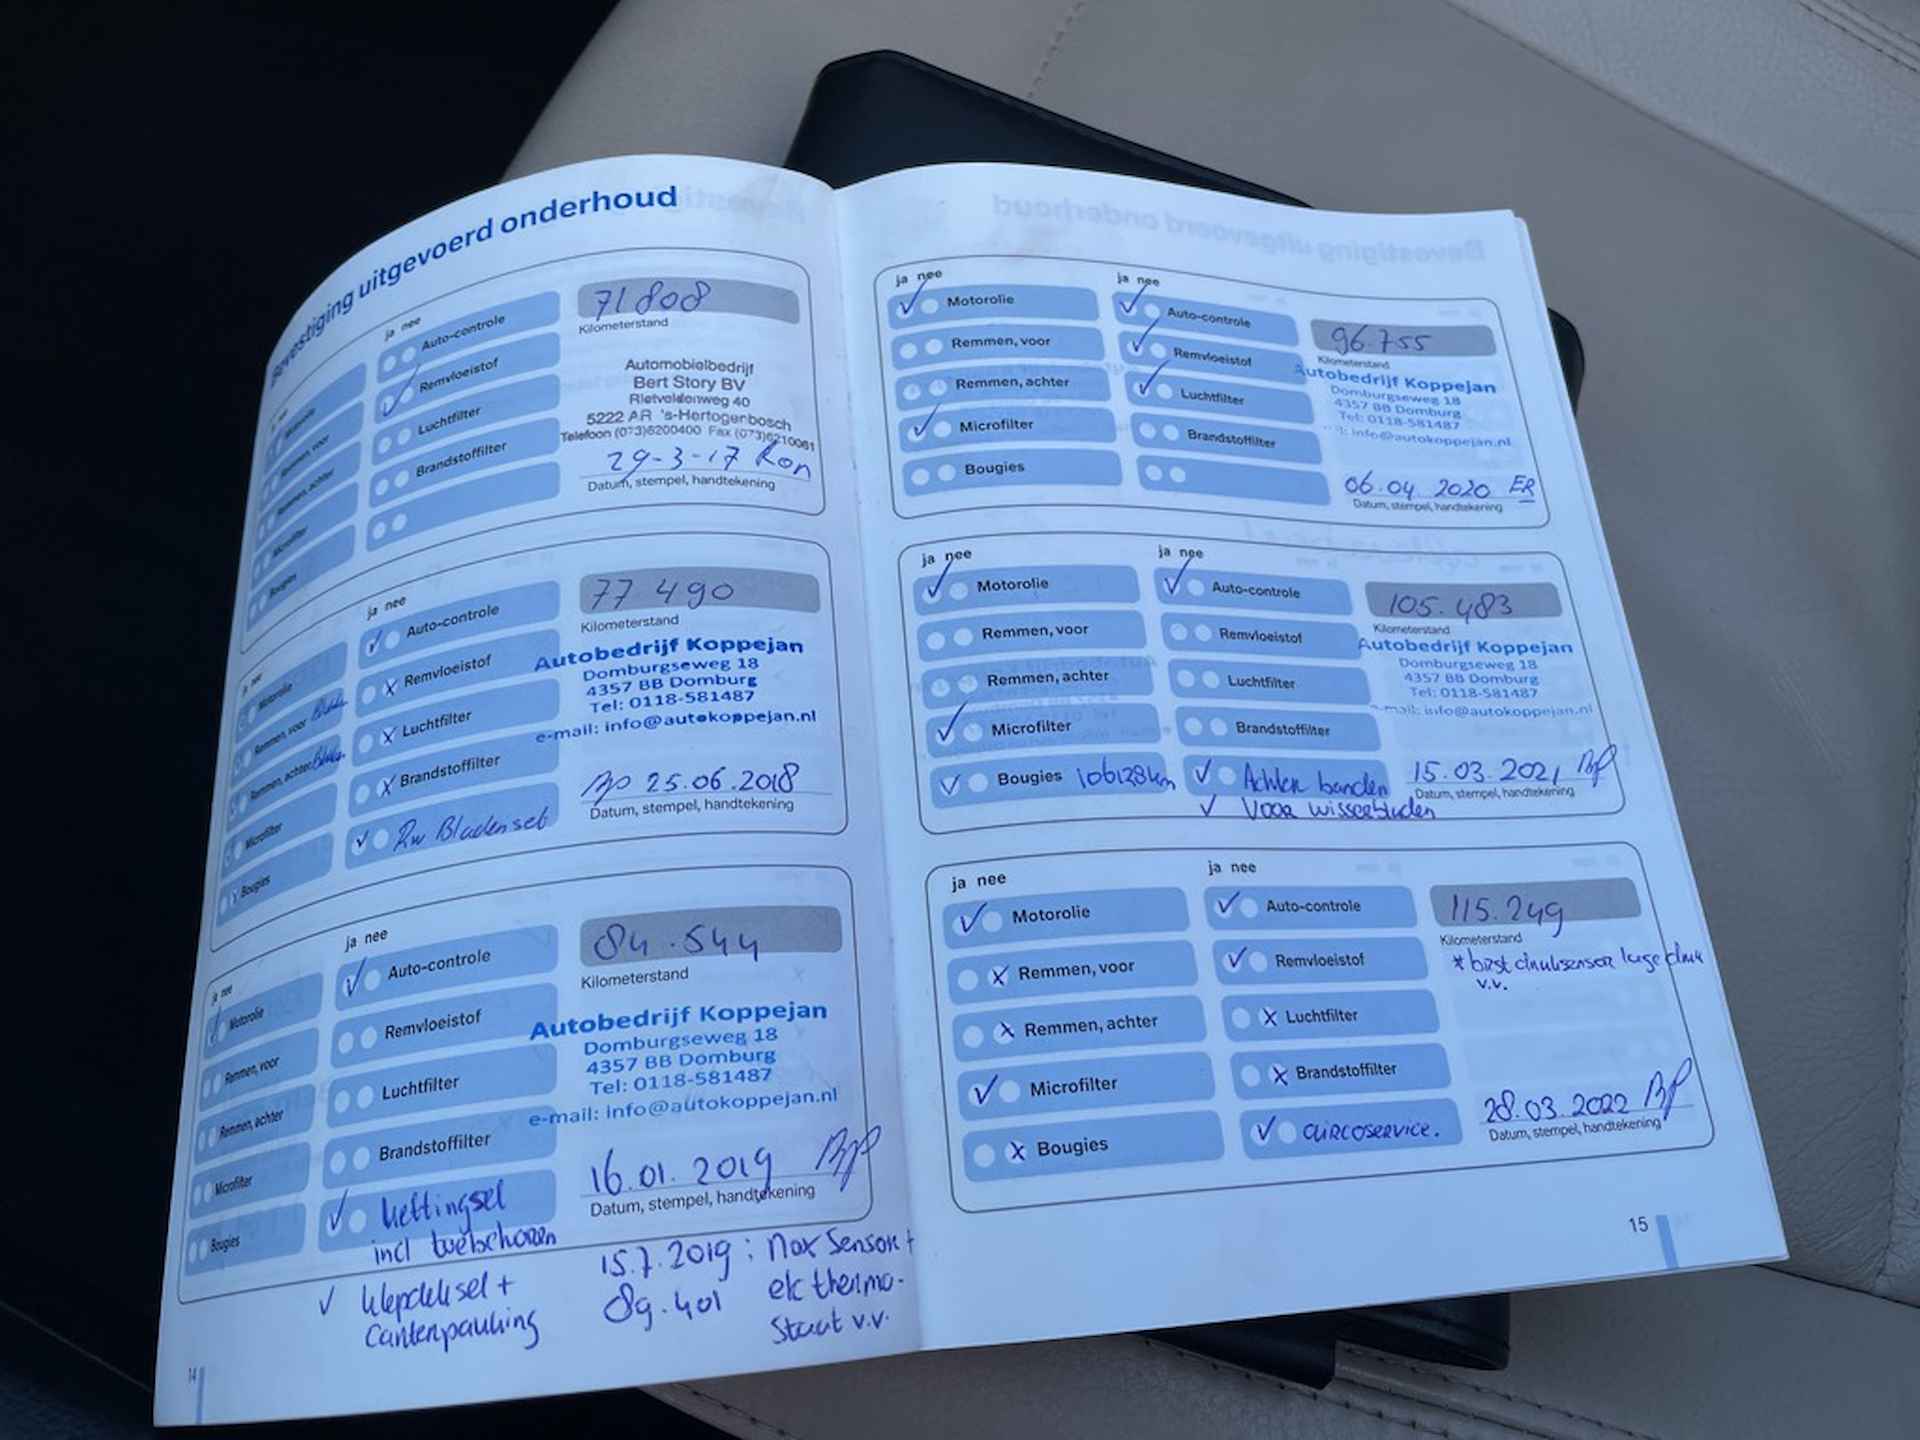 Bevestiging uitgevoerd onderhoud
ja nee
Motorolie
Remmen, voor
Remmen, achter
Microfilter
Bougies
ja nee
Auto-controle
Remvloeistof
Luchtfilter
Brandstoffilter
71808
Kilometerstand
Automobielbedrijf
Bert Story BV
Rietveldenweg 40
5222 AR 's-Hertogenbosch
Telefoon (073)6200400 Fax (073)6210061
29-3-17 Ron
Datum, stempel, handtekening
ja nee
Motorolie
Remmen, voor
Remmen, achter
Microfilter
Bougies
ja nee
Auto-controle
Remvloeistof
Luchtfilter
Brandstoffilter
Rw Bladenset
77 490
Kilometerstand
Autobedrijf Koppejan
Domburgseweg 18
4357 BB Domburg
Tel: 0118-581487
e-mail: info@autokoppejan.nl
25.06.2018
Datum, stempel, handtekening
ja nee
Motorolie
Remmen, voor
Remmen, achter
Microfilter
Bougies
ja nee
Auto-controle
Remvloeistof
Luchtfilter
Brandstoffilter
Kettingsel
incl
84.544
Kilometerstand
Autobedrijf Koppejan
Domburgseweg 18
4357 BB Domburg
Tel: 0118-581487
e-mail: info@autokoppejan.nl
16.01.2019
Datum, stempel, handtekening
klepdeksel +
Carterpakking
15.7.2019: Nox Sensor +
89.401 elc thermo-
staat v.v.
14
ja nee
Motorolie
Remmen, voor
Remmen, achter
Microfilter
Bougies
ja nee
Auto-controle
Remvloeistof
Luchtfilter
Brandstoffilter
96.755
Kilometerstand
Autobedrijf Koppejan
Domburgseweg 18
4357 BB Domburg
Tel: 0118-581487
info@autokoppejan.nl
06.04.2020 ER
Datum, stempel, handtekening
ja nee
Motorolie
Remmen, voor
Remmen, achter
Microfilter
Bougies 106128km
ja nee
Auto-controle
Remvloeistof
Luchtfilter
Brandstoffilter
Achter banden
Voor wisserbladen
105.483
Kilometerstand
Autobedrijf Koppejan
Domburgseweg 18
4357 BB Domburg
Tel: 0118-581487
e-mail: info@autokoppejan.nl
15.03.2021
Datum, stempel, handtekening
ja nee
Motorolie
Remmen, voor
Remmen, achter
Microfilter
Bougies
ja nee
Auto-controle
Remvloeistof
Luchtfilter
Brandstoffilter
aircoservice.
115.249
Kilometerstand
* druksensor lage druk
v.v.
28.03.2022
Datum, stempel, handtekening
15